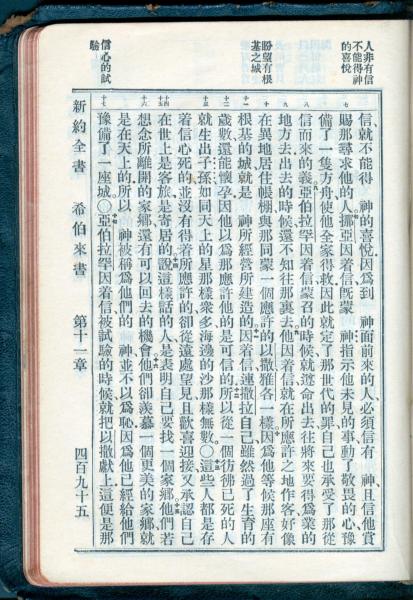 人非有信
不能得神
的喜悅
盼望有根
基之城
信心的試
驗
七
八
九
十
十一
十二
十三
十四
十五
十六
十七
信、就不能得　神的喜悅因爲到　神面前來的人、必須信有　神、且信他賞
賜那尋求他的人。挪亞因着信旣蒙　神指示他未見的事、動了敬畏的心、豫
備了一隻方舟使他全家得救因此就定了那世代的罪自己也承受了那從
信而來的義。亞伯拉罕因着信蒙召的時候就遵命出去往將來要得爲業的
地方去出去的時候還不知往那裏去。他因着信就在所應許之地作客好像
在異地居住帳棚與那同蒙一個應許的以撒雅各一樣。因爲他等候那座有
根基的城就是　神所經營所建造的。因着信連撒拉自己雖然過了生育的
歲數還能懷孕因他以爲那應許他的是可信的。所以從一個彷彿已死的人
就生出子孫如同天上的星那樣衆多海邊的沙那樣無數。〇這些人都是存
着信心死的並沒有得着所應許的卻從遠處望見且歡喜迎接又承認自己
在世上是客旅是寄居的。說這樣話的人是表明自己要找一個家鄉。他們若
想念所離開的家鄉還有可以回去的機會。他們卻羨慕一個更美的家鄉就
是在天上的所以　神被稱爲他們的　神並不以爲恥因爲他已經給他們
豫備了一座城。〇亞伯拉罕因着信被試驗的時候就把以撒獻上這便是那
新約全書　希伯來書　第十一章　四百九十五